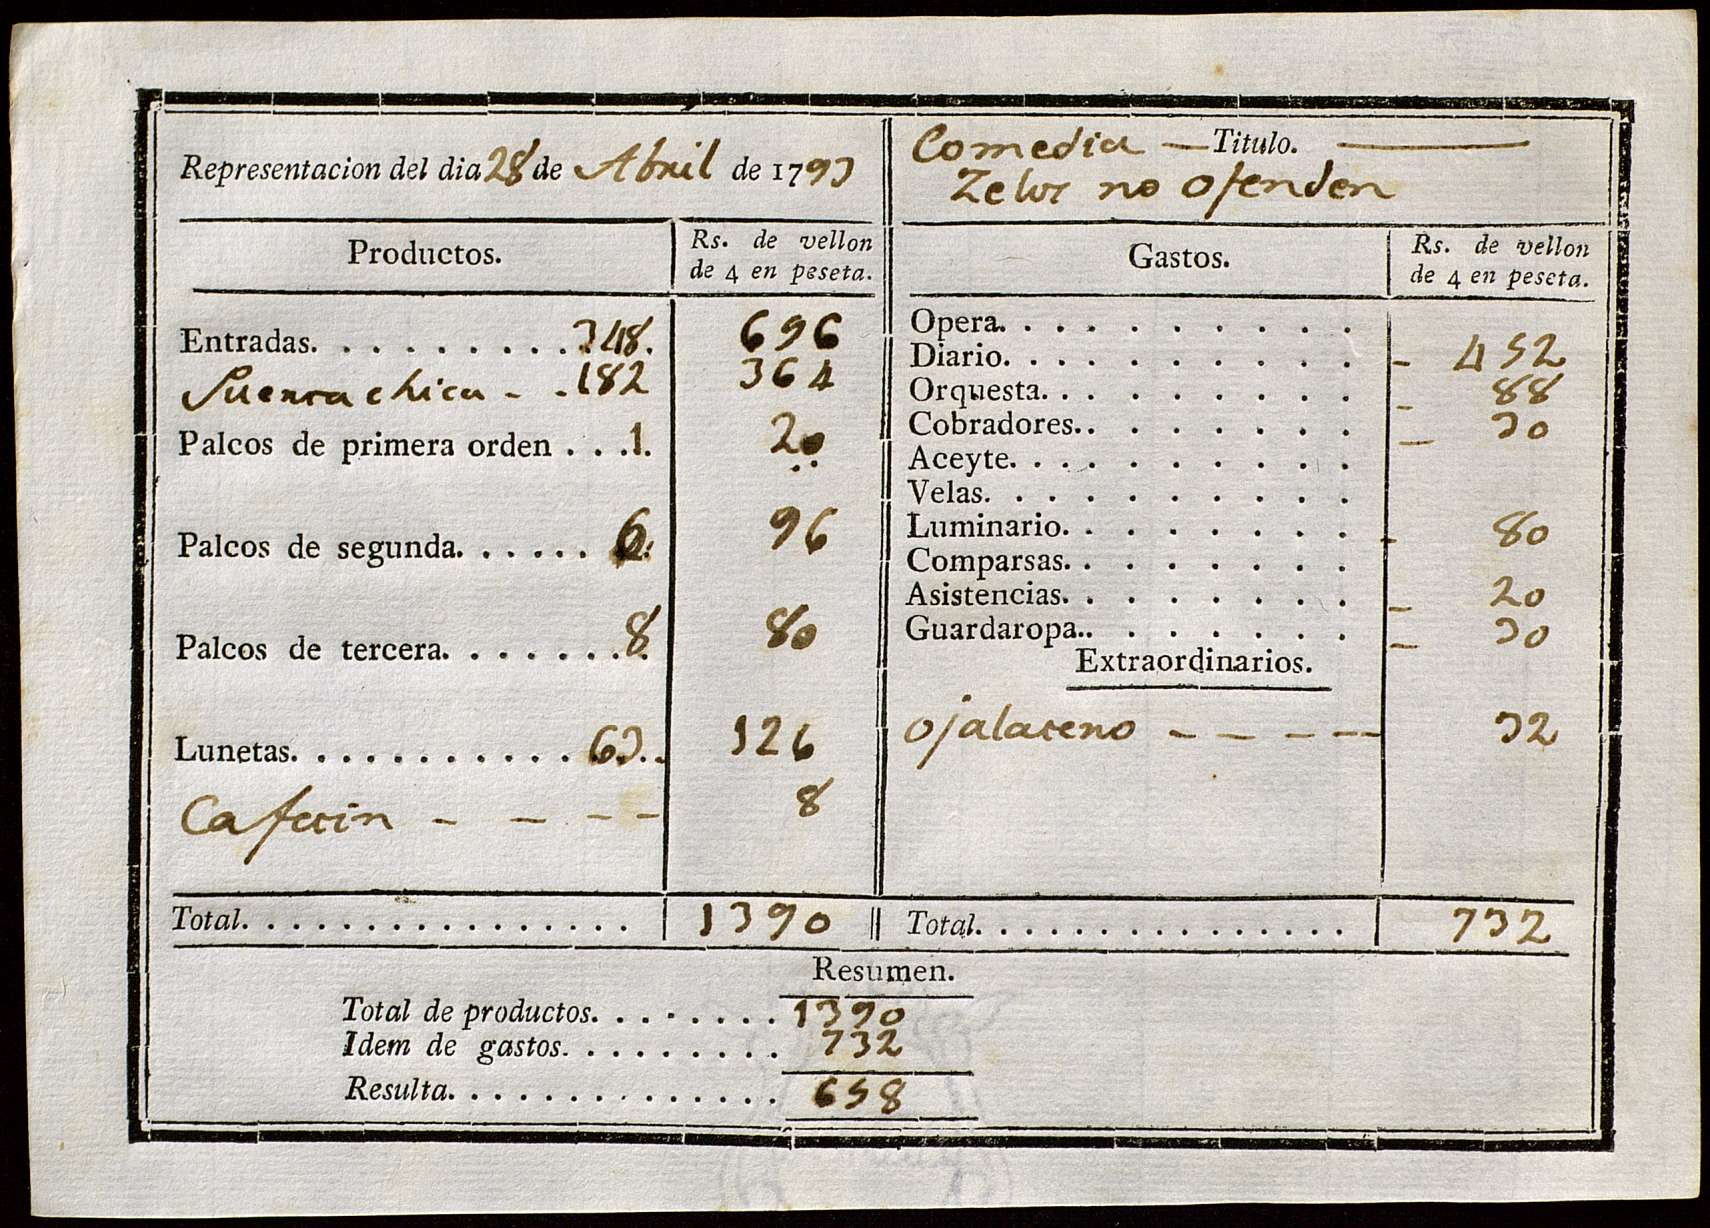 Representacion del dia 28 de Abril de 1793
Productos. Rs. de vellon de 4 en peseta.
Entradas. 348. 696
Puerta chica - - 182 364
Palcos de primera orden . . . 1. 20
Palcos de segunda. 6. 96
Palcos de tercera. 8 80
Lunetas. 63. 126
Cafetin - - - - 8
Total. 1390
Comedia — Titulo. —
Zelos no ofenden
Gastos. Rs. de vellon de 4 en peseta.
Opera.
Diario. - 452
Orquesta. - 88
Cobradores. - 30
Aceyte.
Velas.
Luminario. - 80
Comparsas.
Asistencias. - 20
Guardaropa. - 30
Extraordinarios.
ojalateno - - - - 32
Total. 732
Resumen.
Total de productos. 1390
Idem de gastos. 732
Resulta. 658